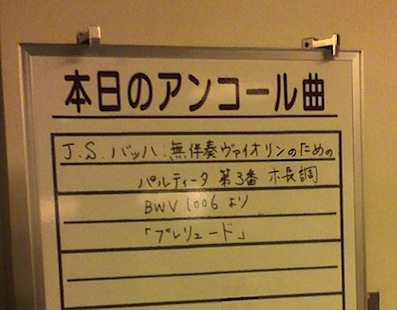 本日のアンコール曲
J.S.バッハ:無伴奏ヴァイオリンのための
パルティータ 第3番 ホ長調
BWV 1006 より
「プレリュード」